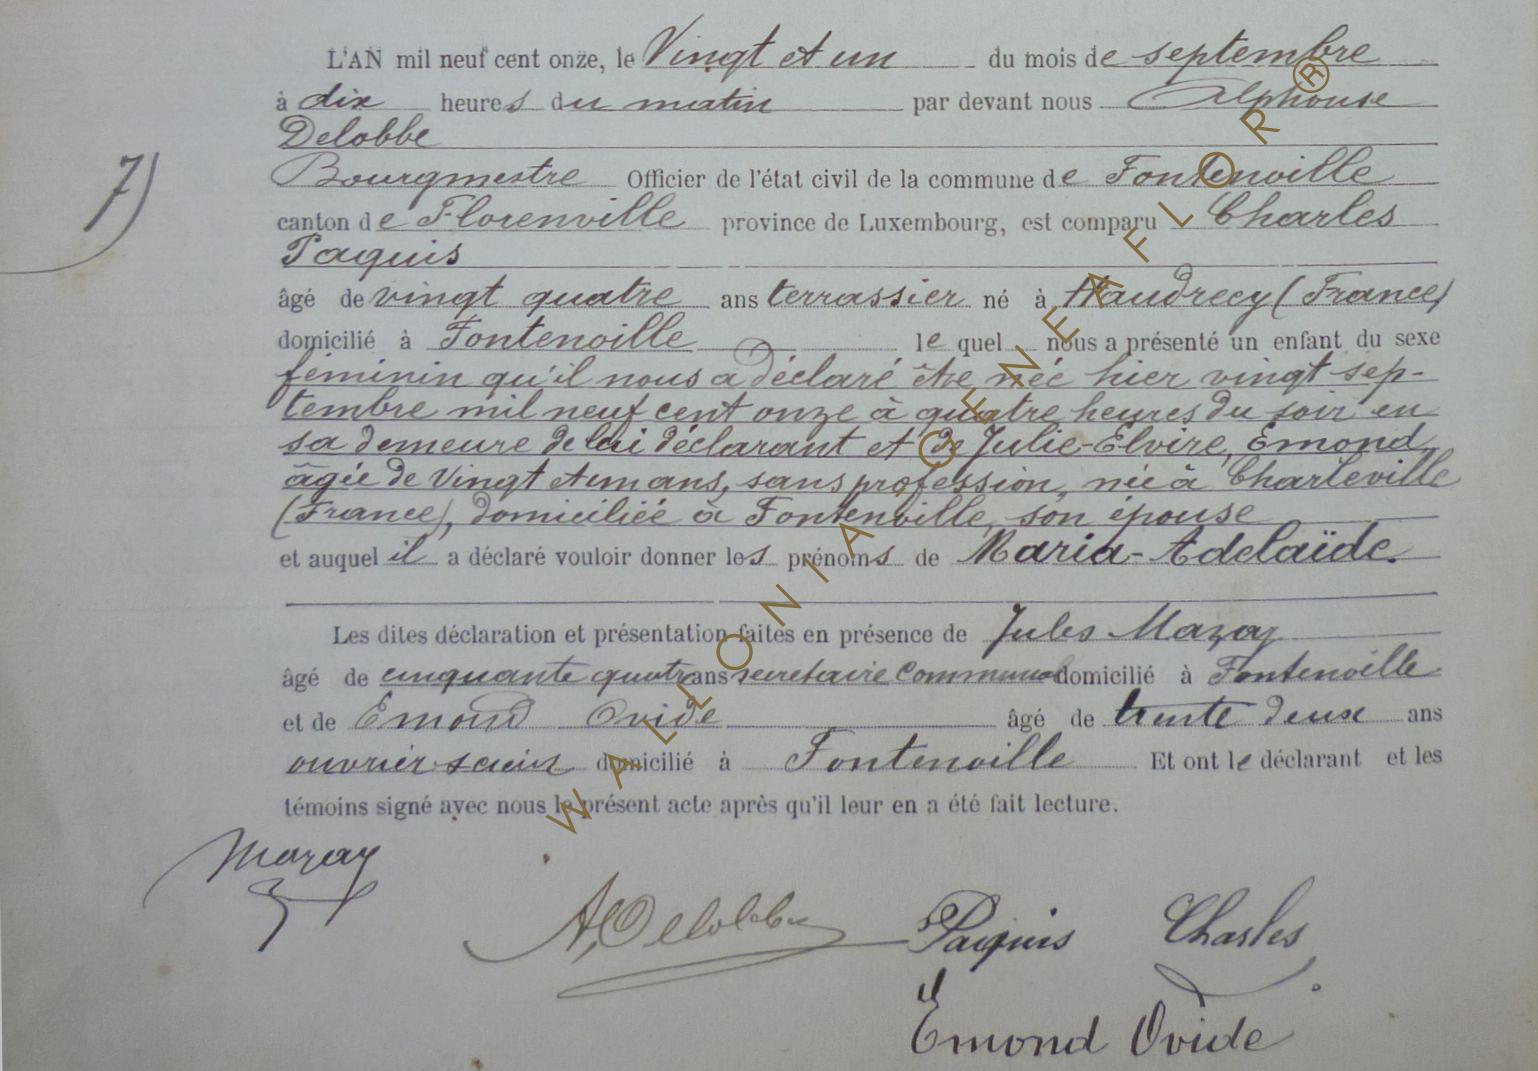 L'AN mil neuf cent onze, le Vingt et un du mois de septembre
à dix heures du matin par devant nous Alphonse
Delobbe
Bourgmestre Officier de l'état civil de la commune de Fontenoille
7)
canton de Florenville province de Luxembourg, est comparu Charles
Paquis
âgé de vingt quatre ans terrassier né à Haudrecy (France)
domicilié à Fontenoille le quel nous a présenté un enfant du sexe
féminin qu'il nous a déclaré être née hier vingt sep-
tembre mil neuf cent onze à quatre heures du soir en
sa demeure de lui déclarant et de Julie-Elvire, Emond
âgée de Vingt et un ans, sans profession, née à Charleville
(France), domiciliée à Fontenoille, son épouse
et auquel il a déclaré vouloir donner les prénoms de Maria-Adelaïde.
Les dites déclaration et présentation faites en présence de Jules Mazay
âgé de cinquante quatre ans secretaire communal domicilié à Fontenoille
et de Emond Ovide âgé de trente deux ans
ouvrier domicilié à Fontenoille Et ont le déclarant et les
témoins signé avec nous le présent acte après qu'il leur en a été fait lecture.
Mazay
A, Delobbe Paquis Charles
Emond Ovide
WALLONIA GENEAFLOR®